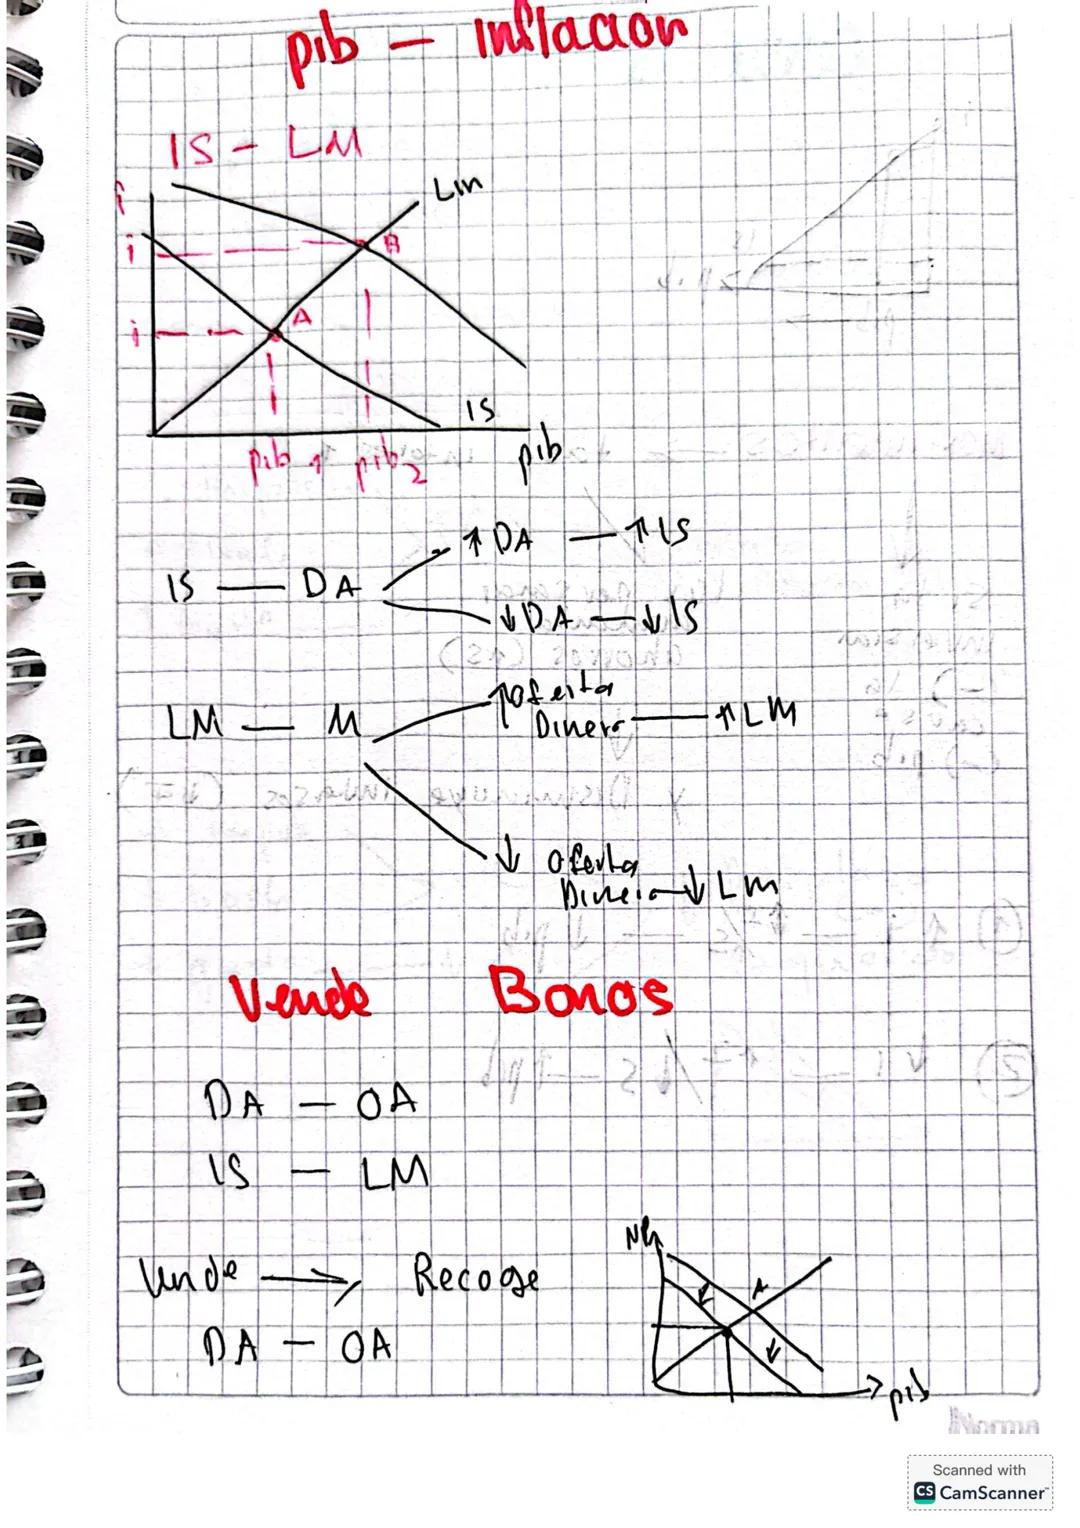 pib - Inflacion
IS - LM
i
Lm
i
B
i
A
IS
pib 1 pib 2
pib
IS — DA
↑ DA — ↑ IS
↓ DA — ↓ IS
LM — M
↑ Oferta
Dinero — ↑ LM
↓ Oferta
Dinero ↓ Lm
Vende Bonos
DA - OA
IS - LM
Vende → Recoge
DA - OA
pib
Norma
Scanned with
CS CamScanner